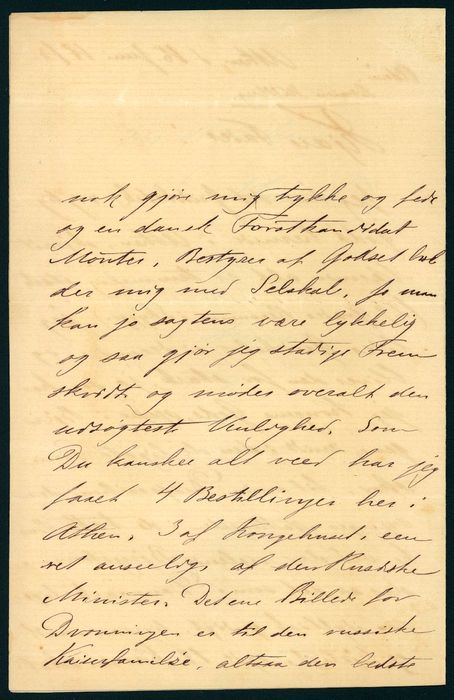 nok gjøre mig tykke og fede
og en dansk Forstkandidat
Münter, Bestyrer af Godset
der mig med Selskab. Jo man
kan jo sagtens være lykkelig
og saa gjør jeg stadige Frem
skridt og mødes overalt den
udsøgteste Venlighed. Som
Du kanskee alt veed har jeg
faaet 4 Bestillinger her i
Athen, 3 af Kongehuset, een
ret anseelig, af den Russiske
Minister. Det ene Billede for
Dronningen er til den russiske
Kaiserfamilie, altsaa den bedste